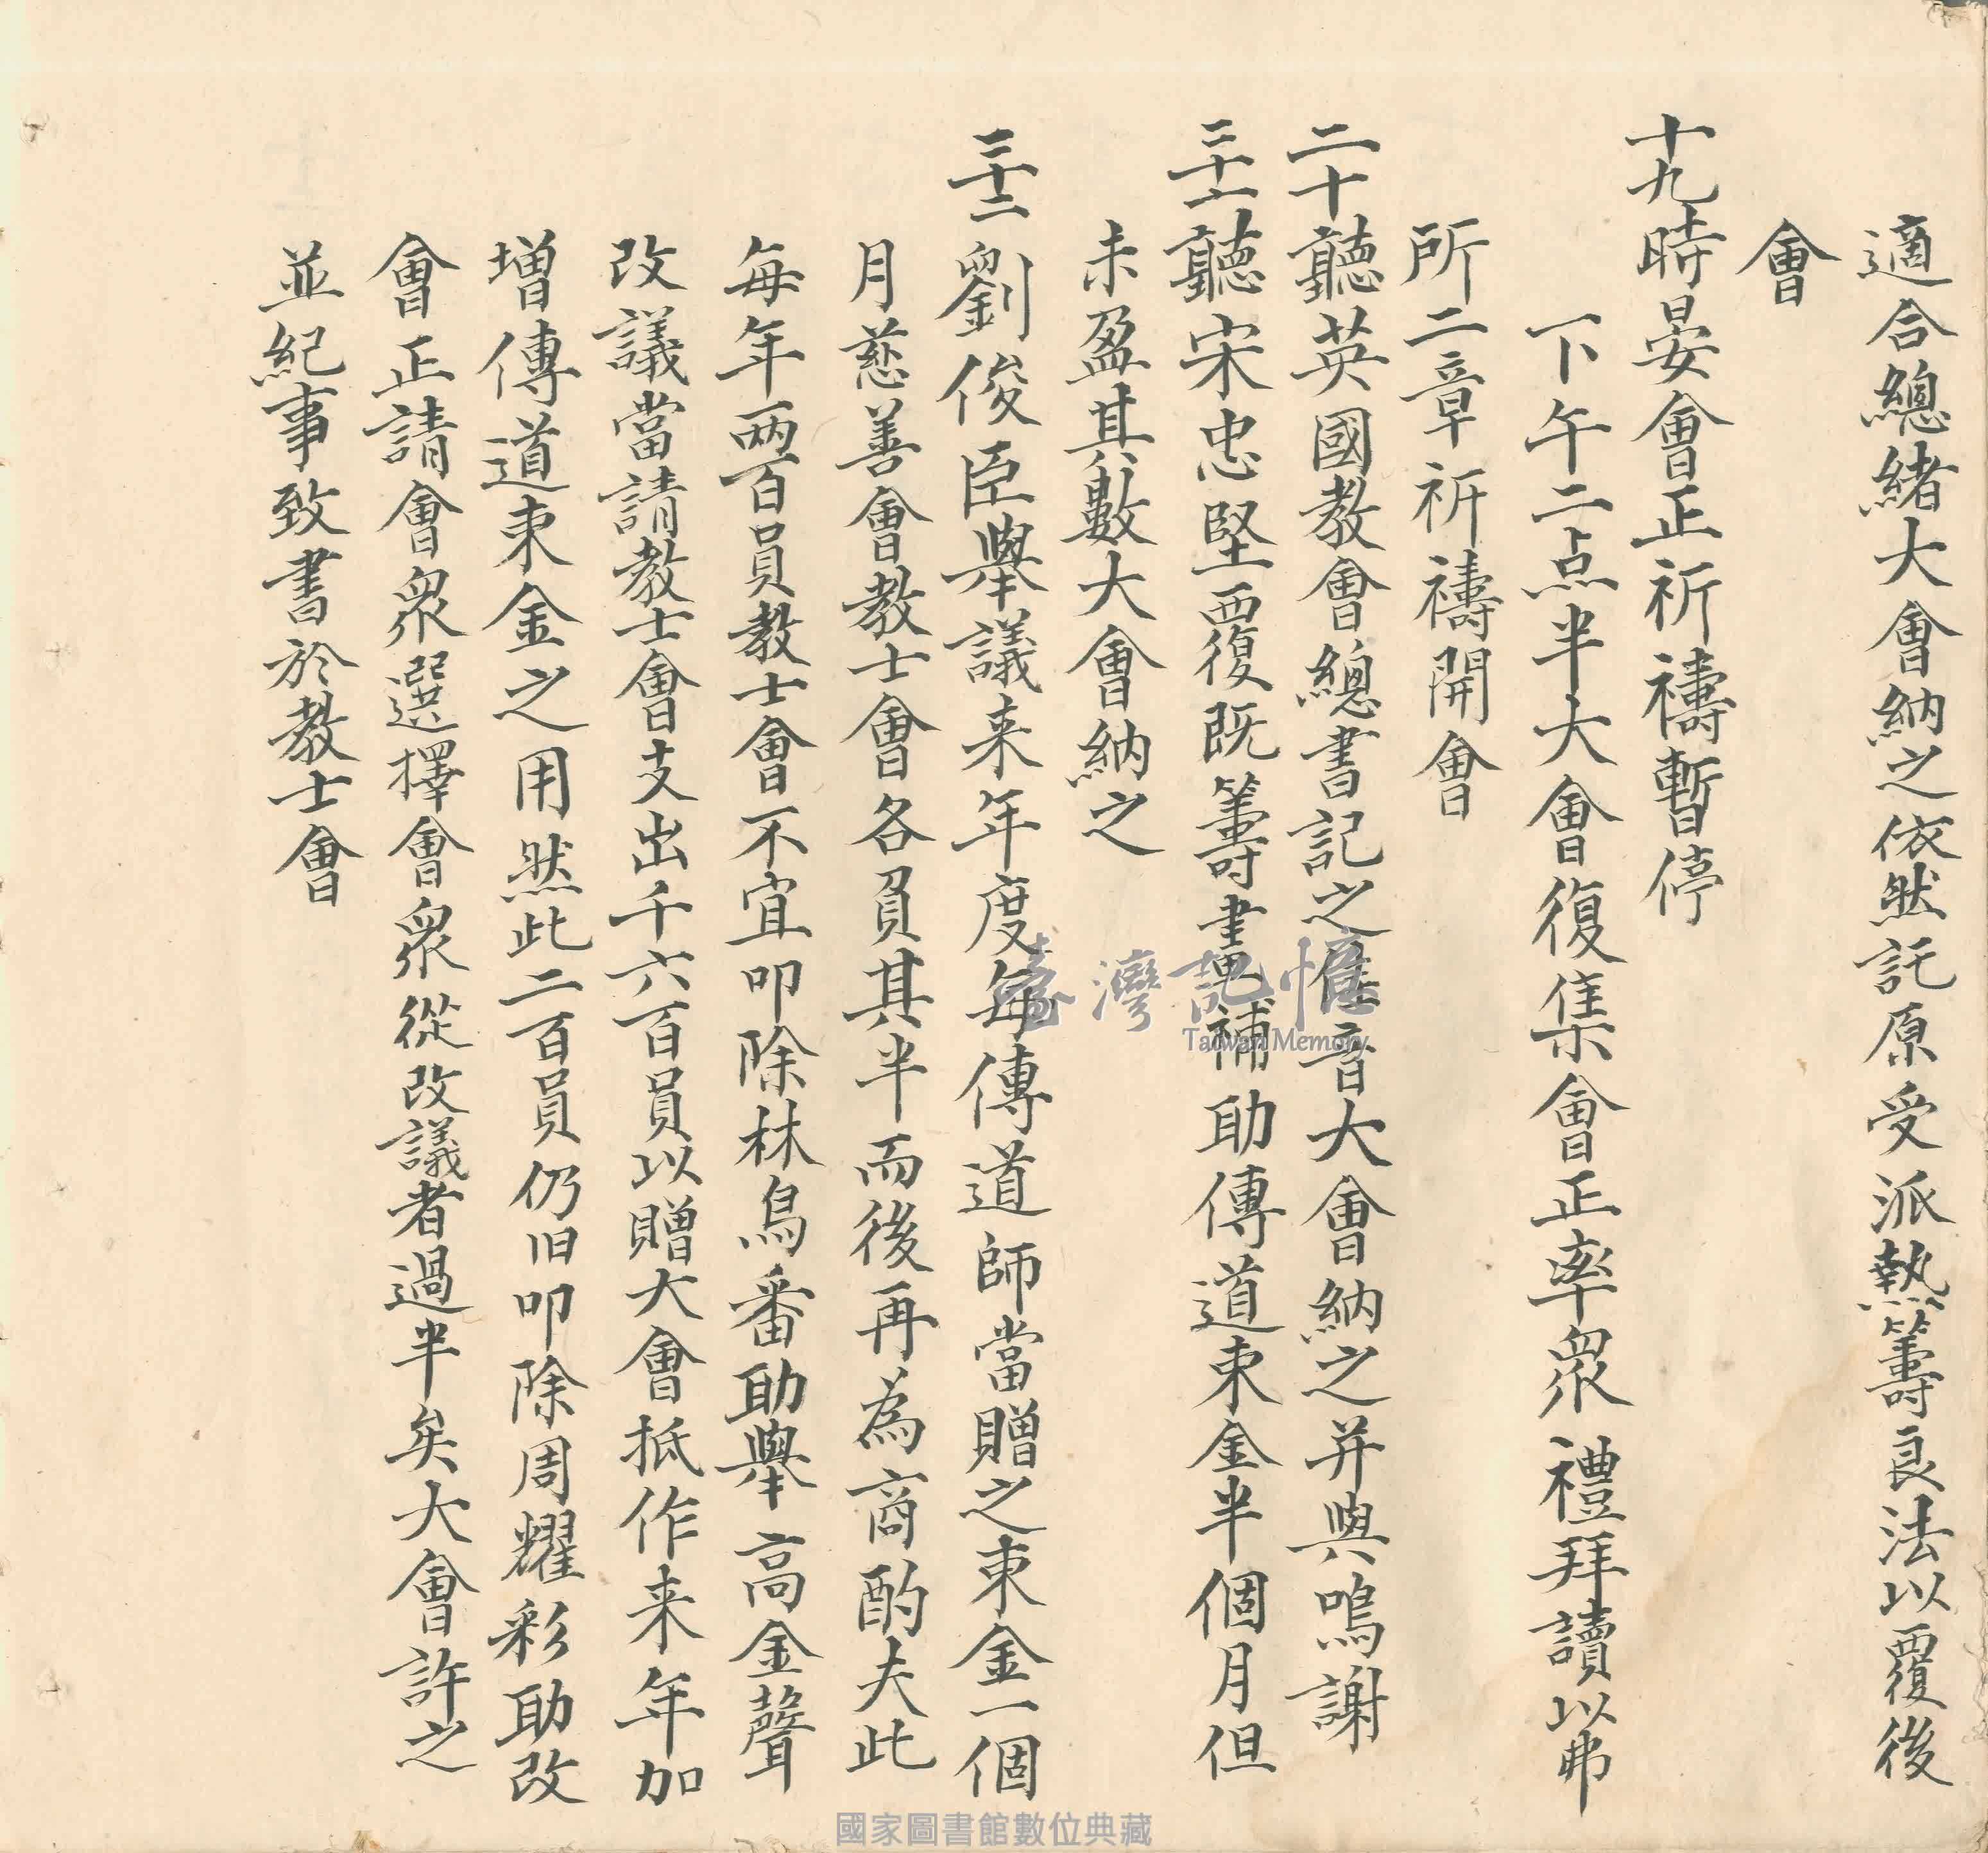 適合總緒大會納之依然託原受派熱籌良法以覆後
會
十九時晏會正祈禱暫停
下午二点半大會復集會正率眾禮拜讀以弗
所二章祈禱開會
二十聽英國教會總書記之隹音大會納之并與鳴謝
二十一聽宋忠堅覆既籌畫補助傳道束金半個月但
未盈其數大會納之
二十二劉俊臣舉議来年度每傳道師當贈之束金一個
月慈善會教士會各負其半而後再為商酌夫此
每年两百員教士會不宜叩除林鳥番助舉高金聲
改議當請教士會支出千六百員以贈大會抵作来年加
增傳道束金之用然此二百員仍旧叩除周耀彩助改
會正請會眾選擇會眾從改議者過半矣大會許之
並紀事致書於教士會
臺灣記憶
Taiwan Memory
國家圖書館數位典藏